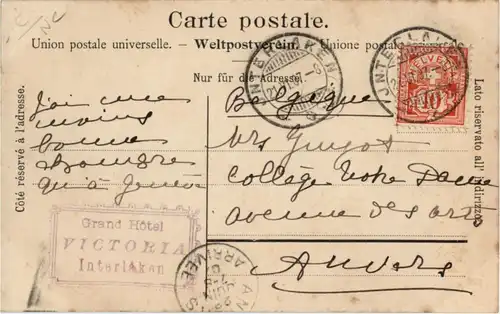 Carte postale.
Union postale universelle. – Weltpostverein. – Unione postale
Nur für die Adresse.
Côté réservé à l'adresse.
Lato riservato all' indirizzo.
INTERLAKEN
INTERLAKEN
HELVETIA
10
j'ai une
moins
bonne
chambre
qu'à Genève
Belgique
Guyot
Collège Notre Dame
avenue des arts
Anvers
Grand Hôtel
VICTORIA
Interlaken
ARRIVÉE
JUIN